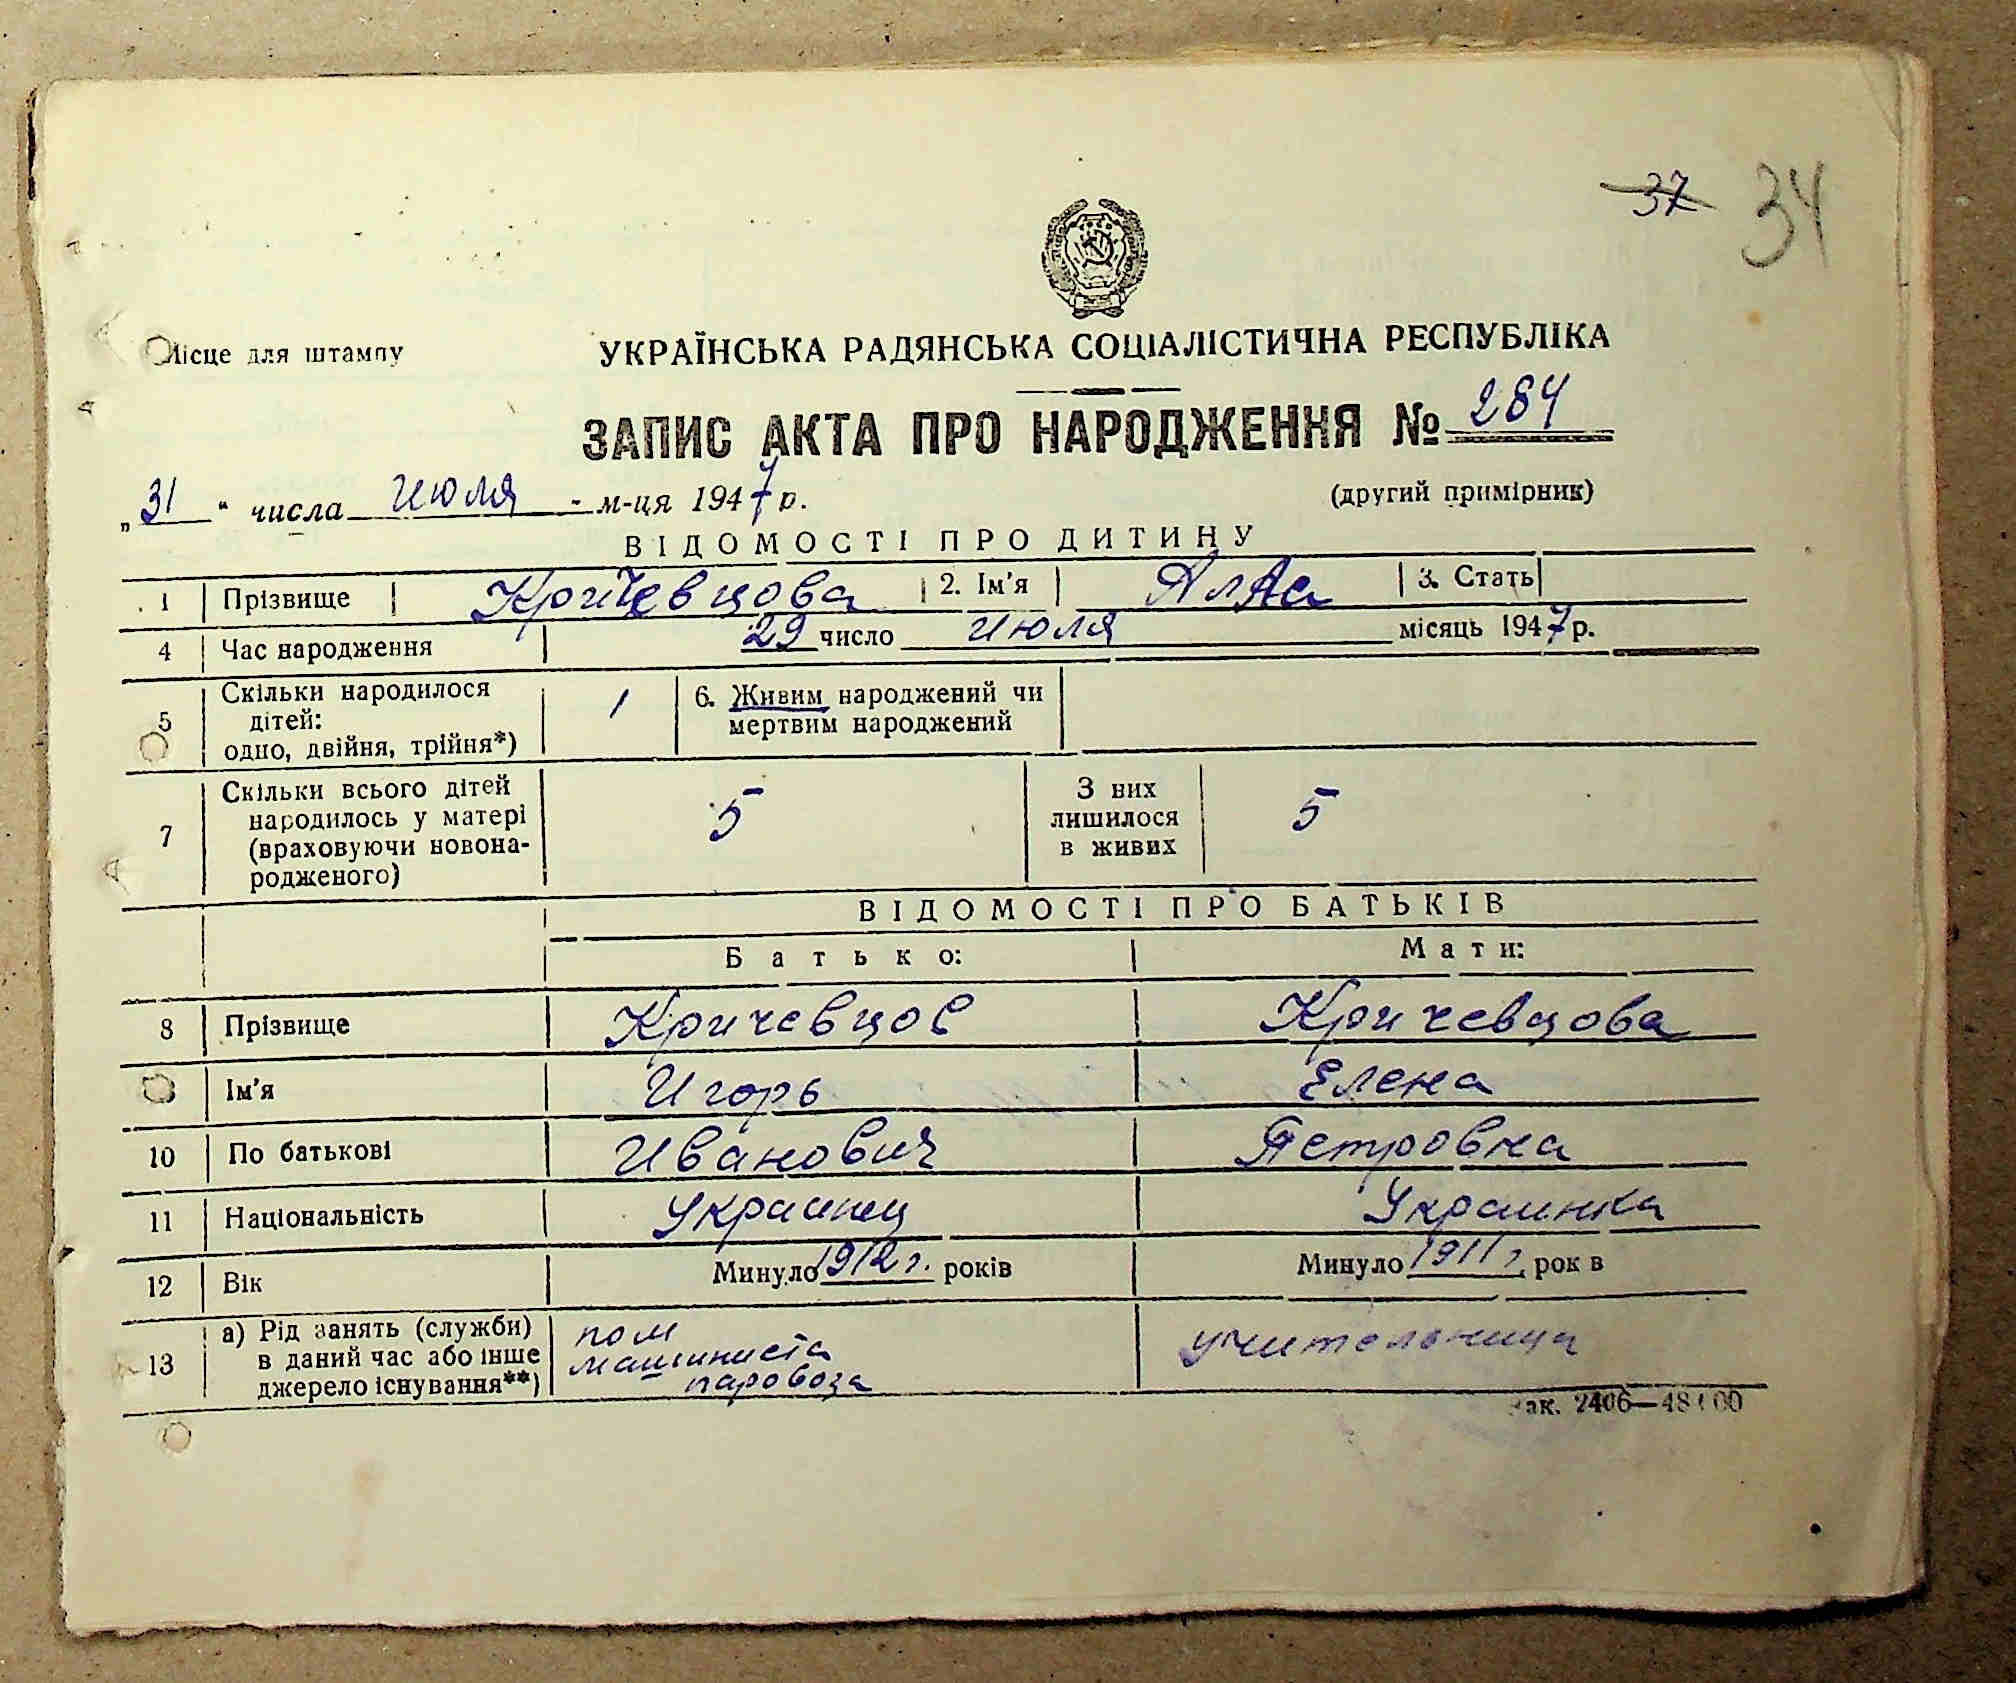 37 34
Місце для штампу
УКРАЇНСЬКА РАДЯНСЬКА СОЦІАЛІСТИЧНА РЕСПУБЛІКА
ЗАПИС АКТА ПРО НАРОДЖЕННЯ № 284
„31" числа июля - м-ця 1947 р. (другий примірник)
ВІДОМОСТІ ПРО ДИТИНУ
1 Прізвище Кричевцова 2. Ім'я Алла 3. Стать
4 Час народження 29 число июля місяць 1947 р.
5 Скільки народилося дітей: одно, двійня, трійня*) 1 6. Живим народжений чи мертвим народжений
7 Скільки всього дітей народилось у матері (враховуючи новонародженого) 5 З них лишилося в живих 5
ВІДОМОСТІ ПРО БАТЬКІВ
Батько: Мати:
8 Прізвище Кричевцов Кричевцова
Ім'я Игорь Елена
10 По батькові Иванович Петровна
11 Національність Украинец Украинка
12 Вік Минуло 1912 г. років Минуло 1911 г рок в
13 а) Рід занять (служби) в даний час або інше джерело існування**) пом машиниста паровоза учительница
Зак. 2406—48